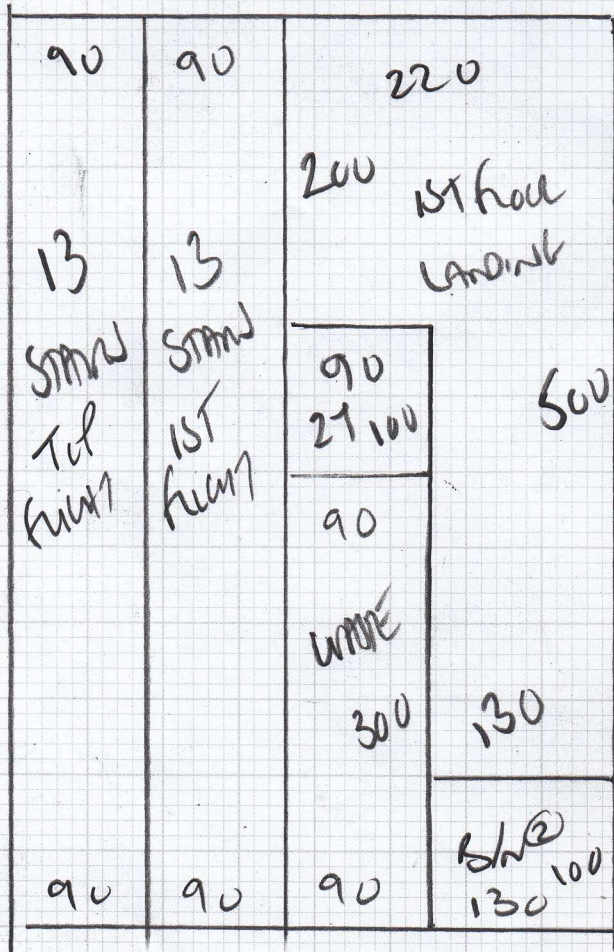 90
13
STAIRS
TOP
FLIGHT
90
90
13
STAIRS
1ST
FLIGHT
90
220
200
1ST FLOOR
LANDING
500
130
90
2T 100
90
300
90
B/W ②
130 100